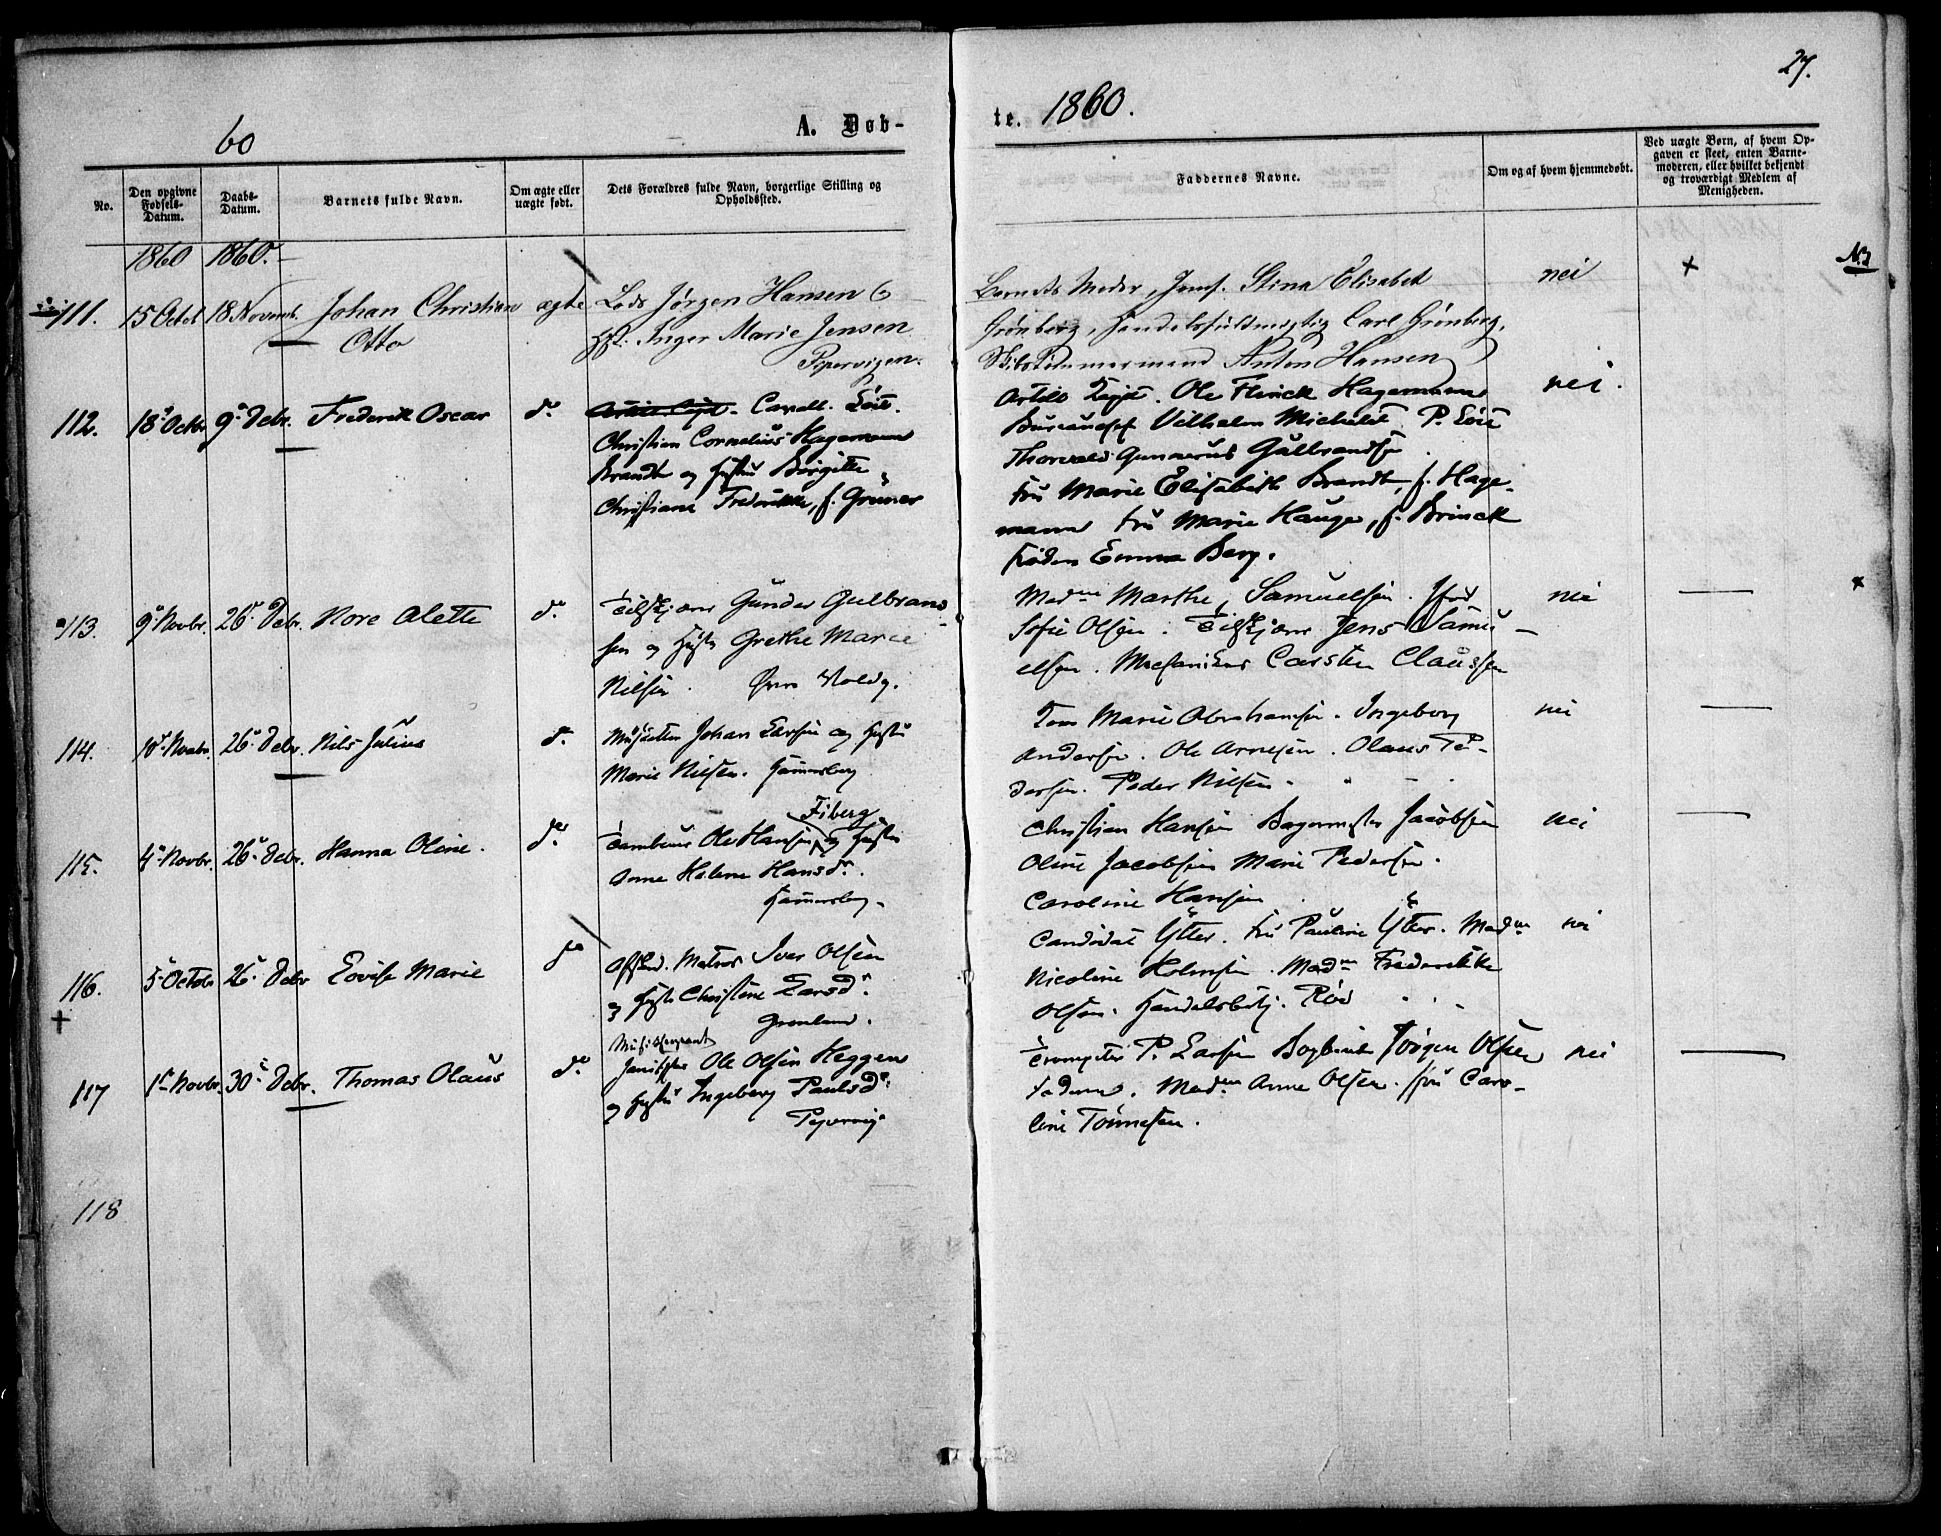 27.
60
A. Døb-
te. 1860.
No.
Den opgivne Fødsels-Datum.
Daabs-Datum.
Barnets fulde Navn.
Om ægte eller uægte født.
Dets Forældres fulde Navn, borgerlige Stilling og Opholdssted.
Faddernes Navne.
Om og af hvem hjemmedøbt.
Ved uægte Børn, af hvem Opgaven er skeet, enten Barnemoderen, eller hvilket bekjendt og troværdigt Medlem af Menigheden.
1860 1860.
111. 15 Octob 18 Novemb. Johan Christian
Otto
ægte
Lods Jørgen Hansen
Inger Marie Jensen
Pipervigen.
Barnets Moder, Jomf. Stina Elisabet
Grønberg, Handelsfuldmegtig Carl Grønberg,
Skibstømmermand Anton Hansen
nei
+
112. 18 Octbr 9 Debr. Frederik Oscar
do
Cavall. Løit.
Christian Cornelius Hagemann
Brandt og Hustru Birgitte
Christiane Frederikke, f. Grüner
Ole Flinck Hagemann
Bureauchef Vilhelm Michelet. P. Løit
Thorvald Gunnerus Gulbrandse
Fru Marie Elisabeth Brandt, f. Hage-
mann Fru Marie Hauge, f. Brinck
Frøken Emma Berg.
nei.
113. 9 Novbr. 26 Debr. Nore Alette
do.
Gunder Gulbrand-
sen og Hustru Grethe Marie
Nilsen. Øvre Voldg.
Madme Marthe Samuelsen.
Sofie Olsen. Jens Samu-
elsen. Mechanikus Carsten Claussen
nei
x
114. 10 Novbr. 26 Debr. Nils Julius
do.
Johan Larsen og Hustru
Marie Nielsen. Hammersborg
Marie Abrahamsen. Ingeborg
Andersen. Ole Arnesen. Olaus Pe-
dersen. Peder Nilsen.
nei
115. 4 Novbr. 26 Debr. Hanna Oline.
do.
Fiberg
Tambour Ole Hansen og Hustru
Anne Helene Hansdr.
Hammersborg.
Christian Hansen Bagermester Jacobsen
Oline Jacobsen Marie Pedersen.
Caroline Hansen
nei
116. 5 Octobr 26 Debr Lovise Marie
do
Afsked. Matros Iver Olsen
og Hustru Christine Larsdr.
Grønland.
Candidat Ytter. Fru Pauline Ytter. Madme
Nicoline Holmsen. Madme Frederikke
Olsen. Handelsbetj. Röd
nei
+
117 1 Novbr. 30 Debr. Thomas Olaus
do.
Ole Olsen Heggen
og Hustru Ingeborg Paulsdr.
Pipervig
Trompeter P. Larsen Bogbinder Jørgen Olsen
Faderen. Madme Anne Olsen. Caro-
line Tönnesen.
nei
118